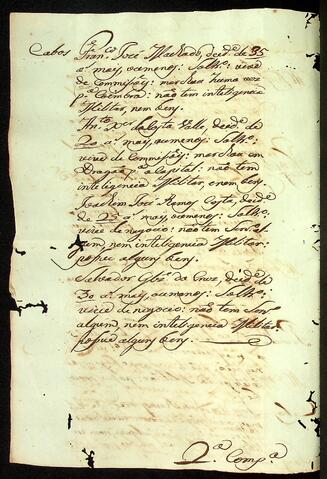 Cabos Fran.co José Machado, de id.e de 35
a.s mais, ou menos: Solt.ro: vive
de Commissões: marchou huma vez
p.a Coimbra: não tem inteligencia
Militar, nem bens.
Ant.o X.er da Costa Valle, de id.e de
20 a.s mais, ou menos: Solt.ro:
vive de Commissões: marchou em
Dragão p.a a Capital: não tem
inteligencia Militar, e nem bens.
Joachim José Ramos Costa, de id.e
de 25 a.s mais, ou menos: Solt.ro:
vive de negocio: não tem Serv.os al-
gum, nem inteligencia Militar:
possue alguns bens.
Salvador da Cruz, de id.e de
30 a.s mais, ou menos: Solt.ro:
vive de negocio: não tem Serv.o
algum, nem inteligencia Militar:
possue alguns bens.
2.a Comp.a